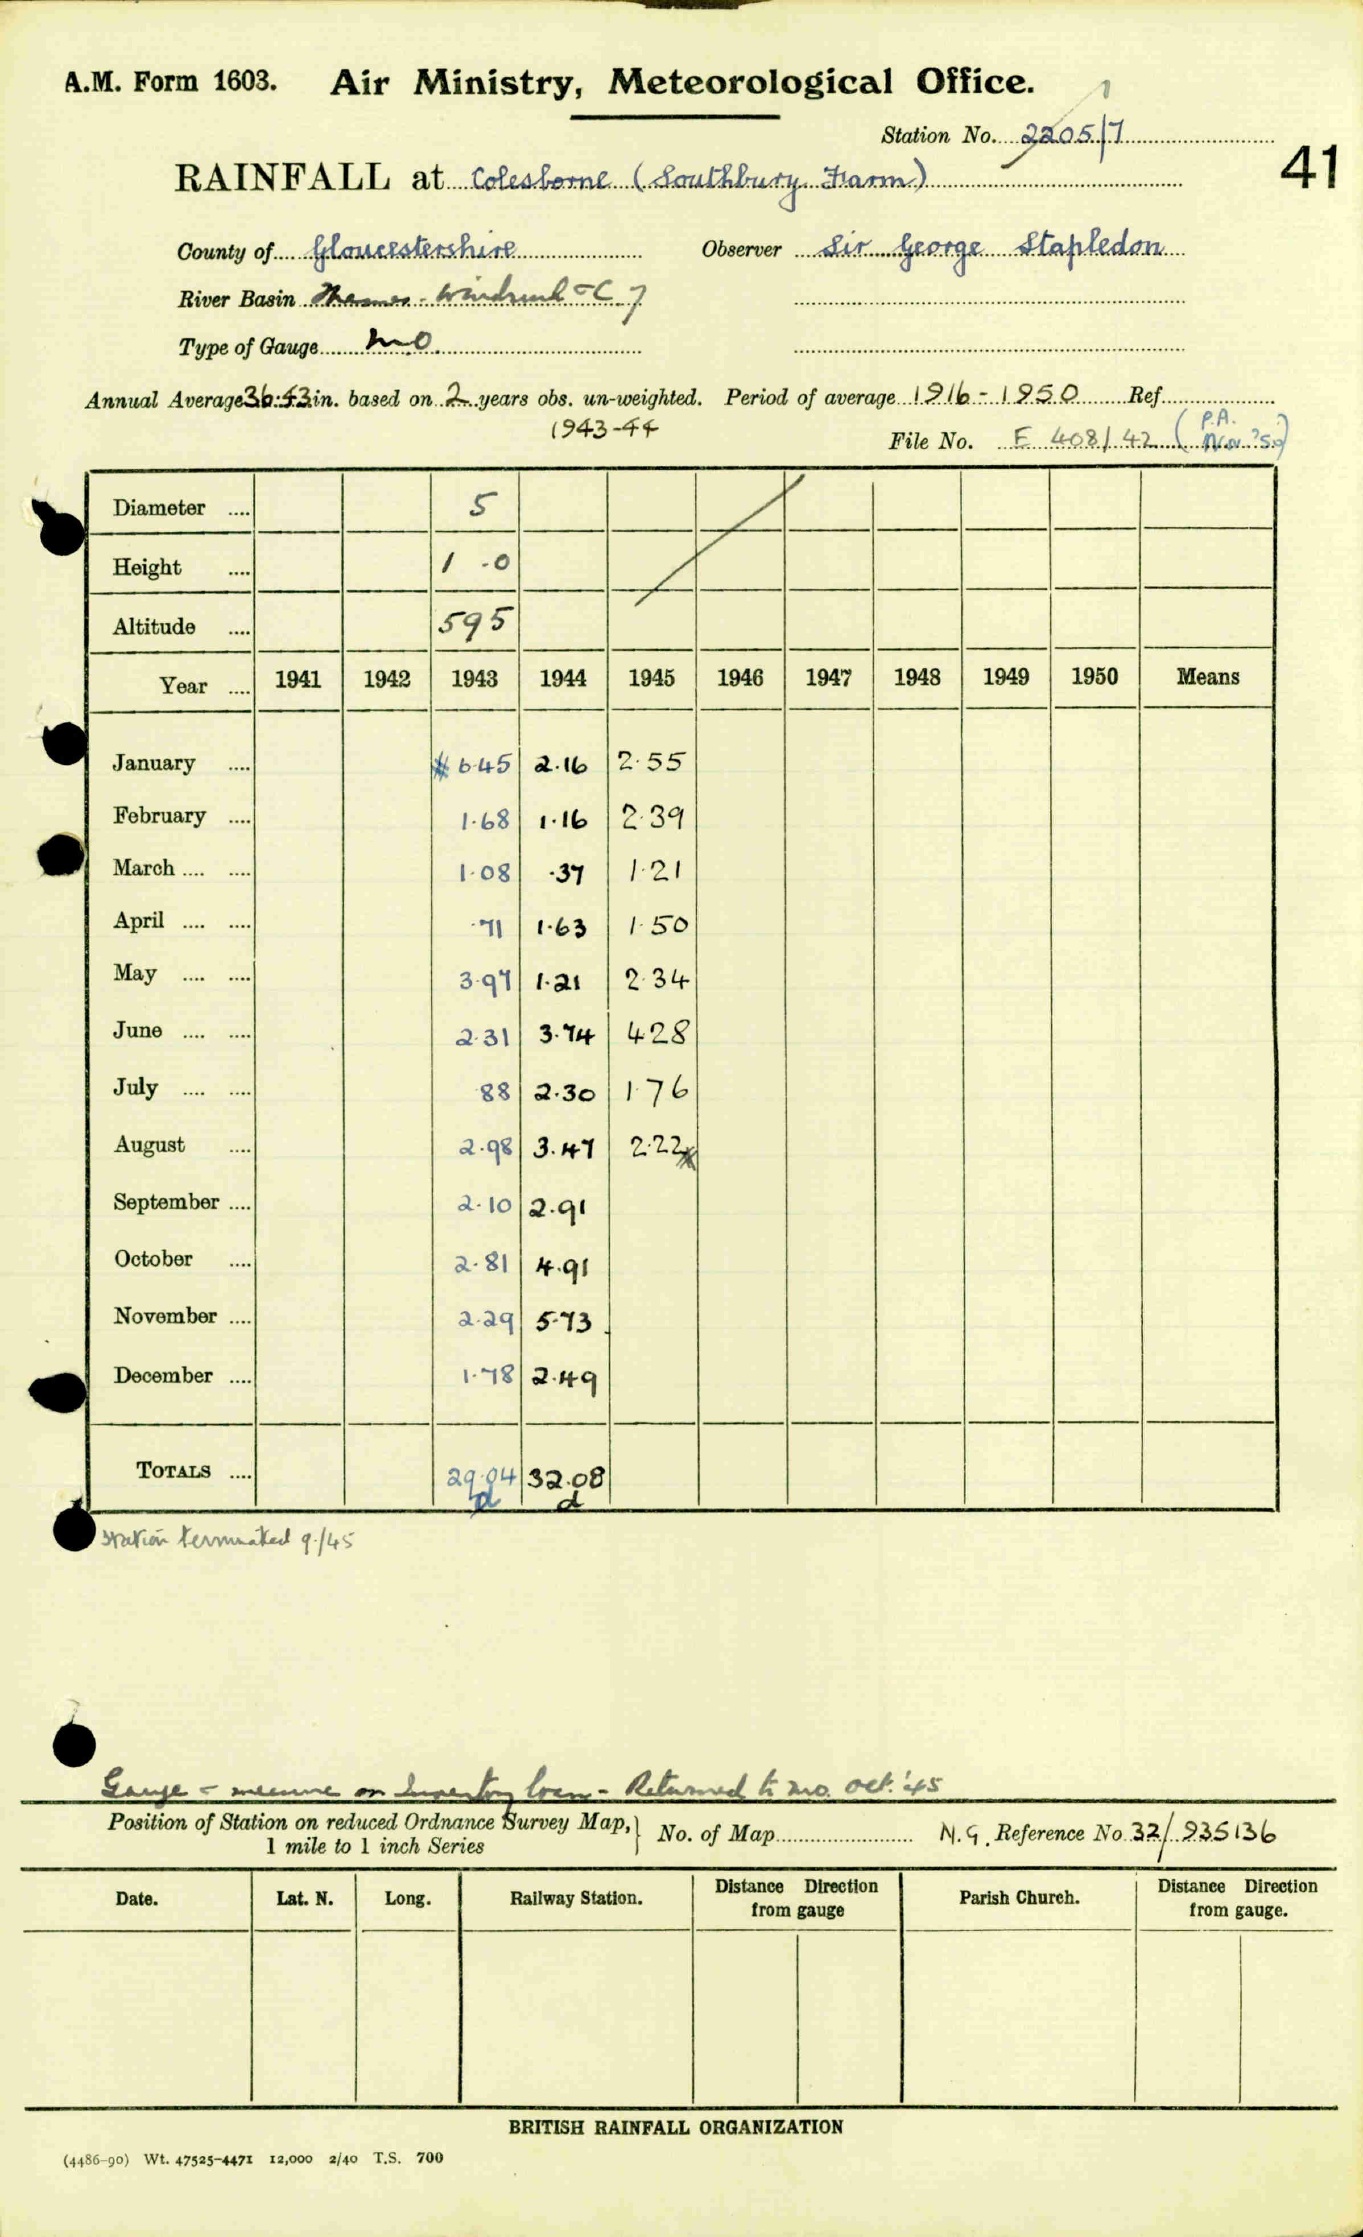 A.M. Form 1603. Air Ministry, Meteorological Office.
Station No. 2205/7
41
RAINFALL at Colesborne (Southbury Farm)
County of Gloucestershire Observer Sir George Stapledon
River Basin Thames - Windrush & C 7
Type of Gauge M.O.
Annual Average 36.43 in. based on 2 years obs. un-weighted. Period of average 1916-1950 Ref.
1943-44
File No. E 408/42 (P.A. Nov '50)
Diameter .... 5
Height .... 1 .0
Altitude .... 595
Year .... 1941 1942 1943 1944 1945 1946 1947 1948 1949 1950 Means
January .... 6.45 2.16 2.55
February .... 1.68 1.16 2.39
March .... .... 1.08 .37 1.21
April .... .... .71 1.63 1.50
May .... .... 3.97 1.21 2.34
June .... .... 2.31 3.74 4.28
July .... .... 88 2.30 1.76
August .... 2.98 3.47 2.22
September .... 2.10 2.91
October .... 2.81 4.91
November .... 2.29 5.73
December .... 1.78 2.49
TOTALS .... 29.04 32.08
d d
Station terminated 9/45
Gauge & measure on Inventory loan - Returned to M.O. Oct. '45
Position of Station on reduced Ordnance Survey Map, 1 mile to 1 inch Series } No. of Map N.G. Reference No. 32/935136
Date. Lat. N. Long. Railway Station. Distance Direction from gauge Parish Church. Distance Direction from gauge.
BRITISH RAINFALL ORGANIZATION
(4486-90) Wt. 47525-4471 12,000 2/40 T.S. 700